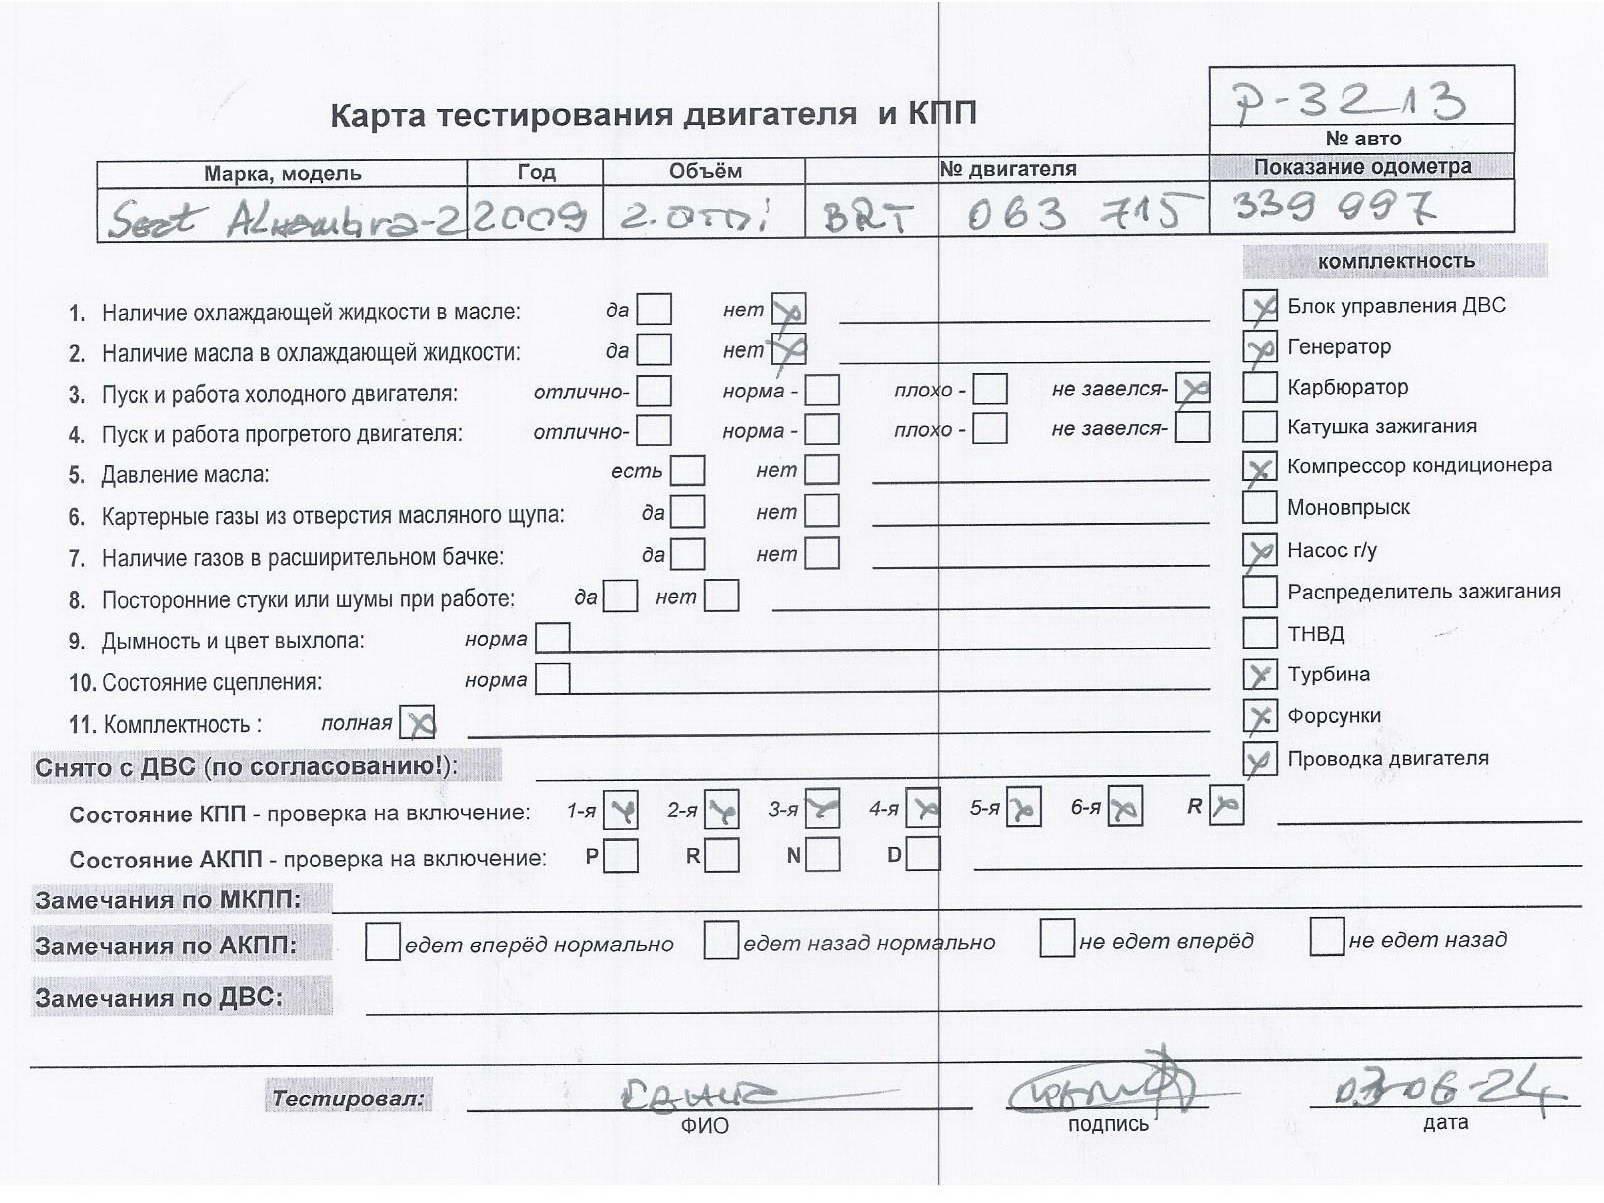 P-3213
Карта тестирования двигателя и КПП
№ авто
Марка, модель Год Объём № двигателя Показание одометра
Seat Alhambra-2 2009 2.0TDi BRT 063 715 339 997
комплектность
1. Наличие охлаждающей жидкости в масле: да нет x
x Блок управления ДВС
2. Наличие масла в охлаждающей жидкости: да нет x
x Генератор
3. Пуск и работа холодного двигателя: отлично- норма - плохо - не завелся- x
Карбюратор
4. Пуск и работа прогретого двигателя: отлично- норма - плохо - не завелся-
Катушка зажигания
5. Давление масла: есть нет
x Компрессор кондиционера
6. Картерные газы из отверстия масляного щупа: да нет
Моновпрыск
7. Наличие газов в расширительном бачке: да нет
x Насос г/у
8. Посторонние стуки или шумы при работе: да нет
Распределитель зажигания
9. Дымность и цвет выхлопа: норма
ТНВД
10. Состояние сцепления: норма
x Турбина
11. Комплектность : полная x
x Форсунки
Снято с ДВС (по согласованию!):
x Проводка двигателя
Состояние КПП - проверка на включение: 1-я x 2-я x 3-я x 4-я x 5-я x 6-я x R x
Состояние АКПП - проверка на включение: P R N D
Замечания по МКПП:
Замечания по АКПП: едет вперёд нормально едет назад нормально не едет вперёд не едет назад
Замечания по ДВС:
Тестировал: 03-06-24
ФИО подпись дата